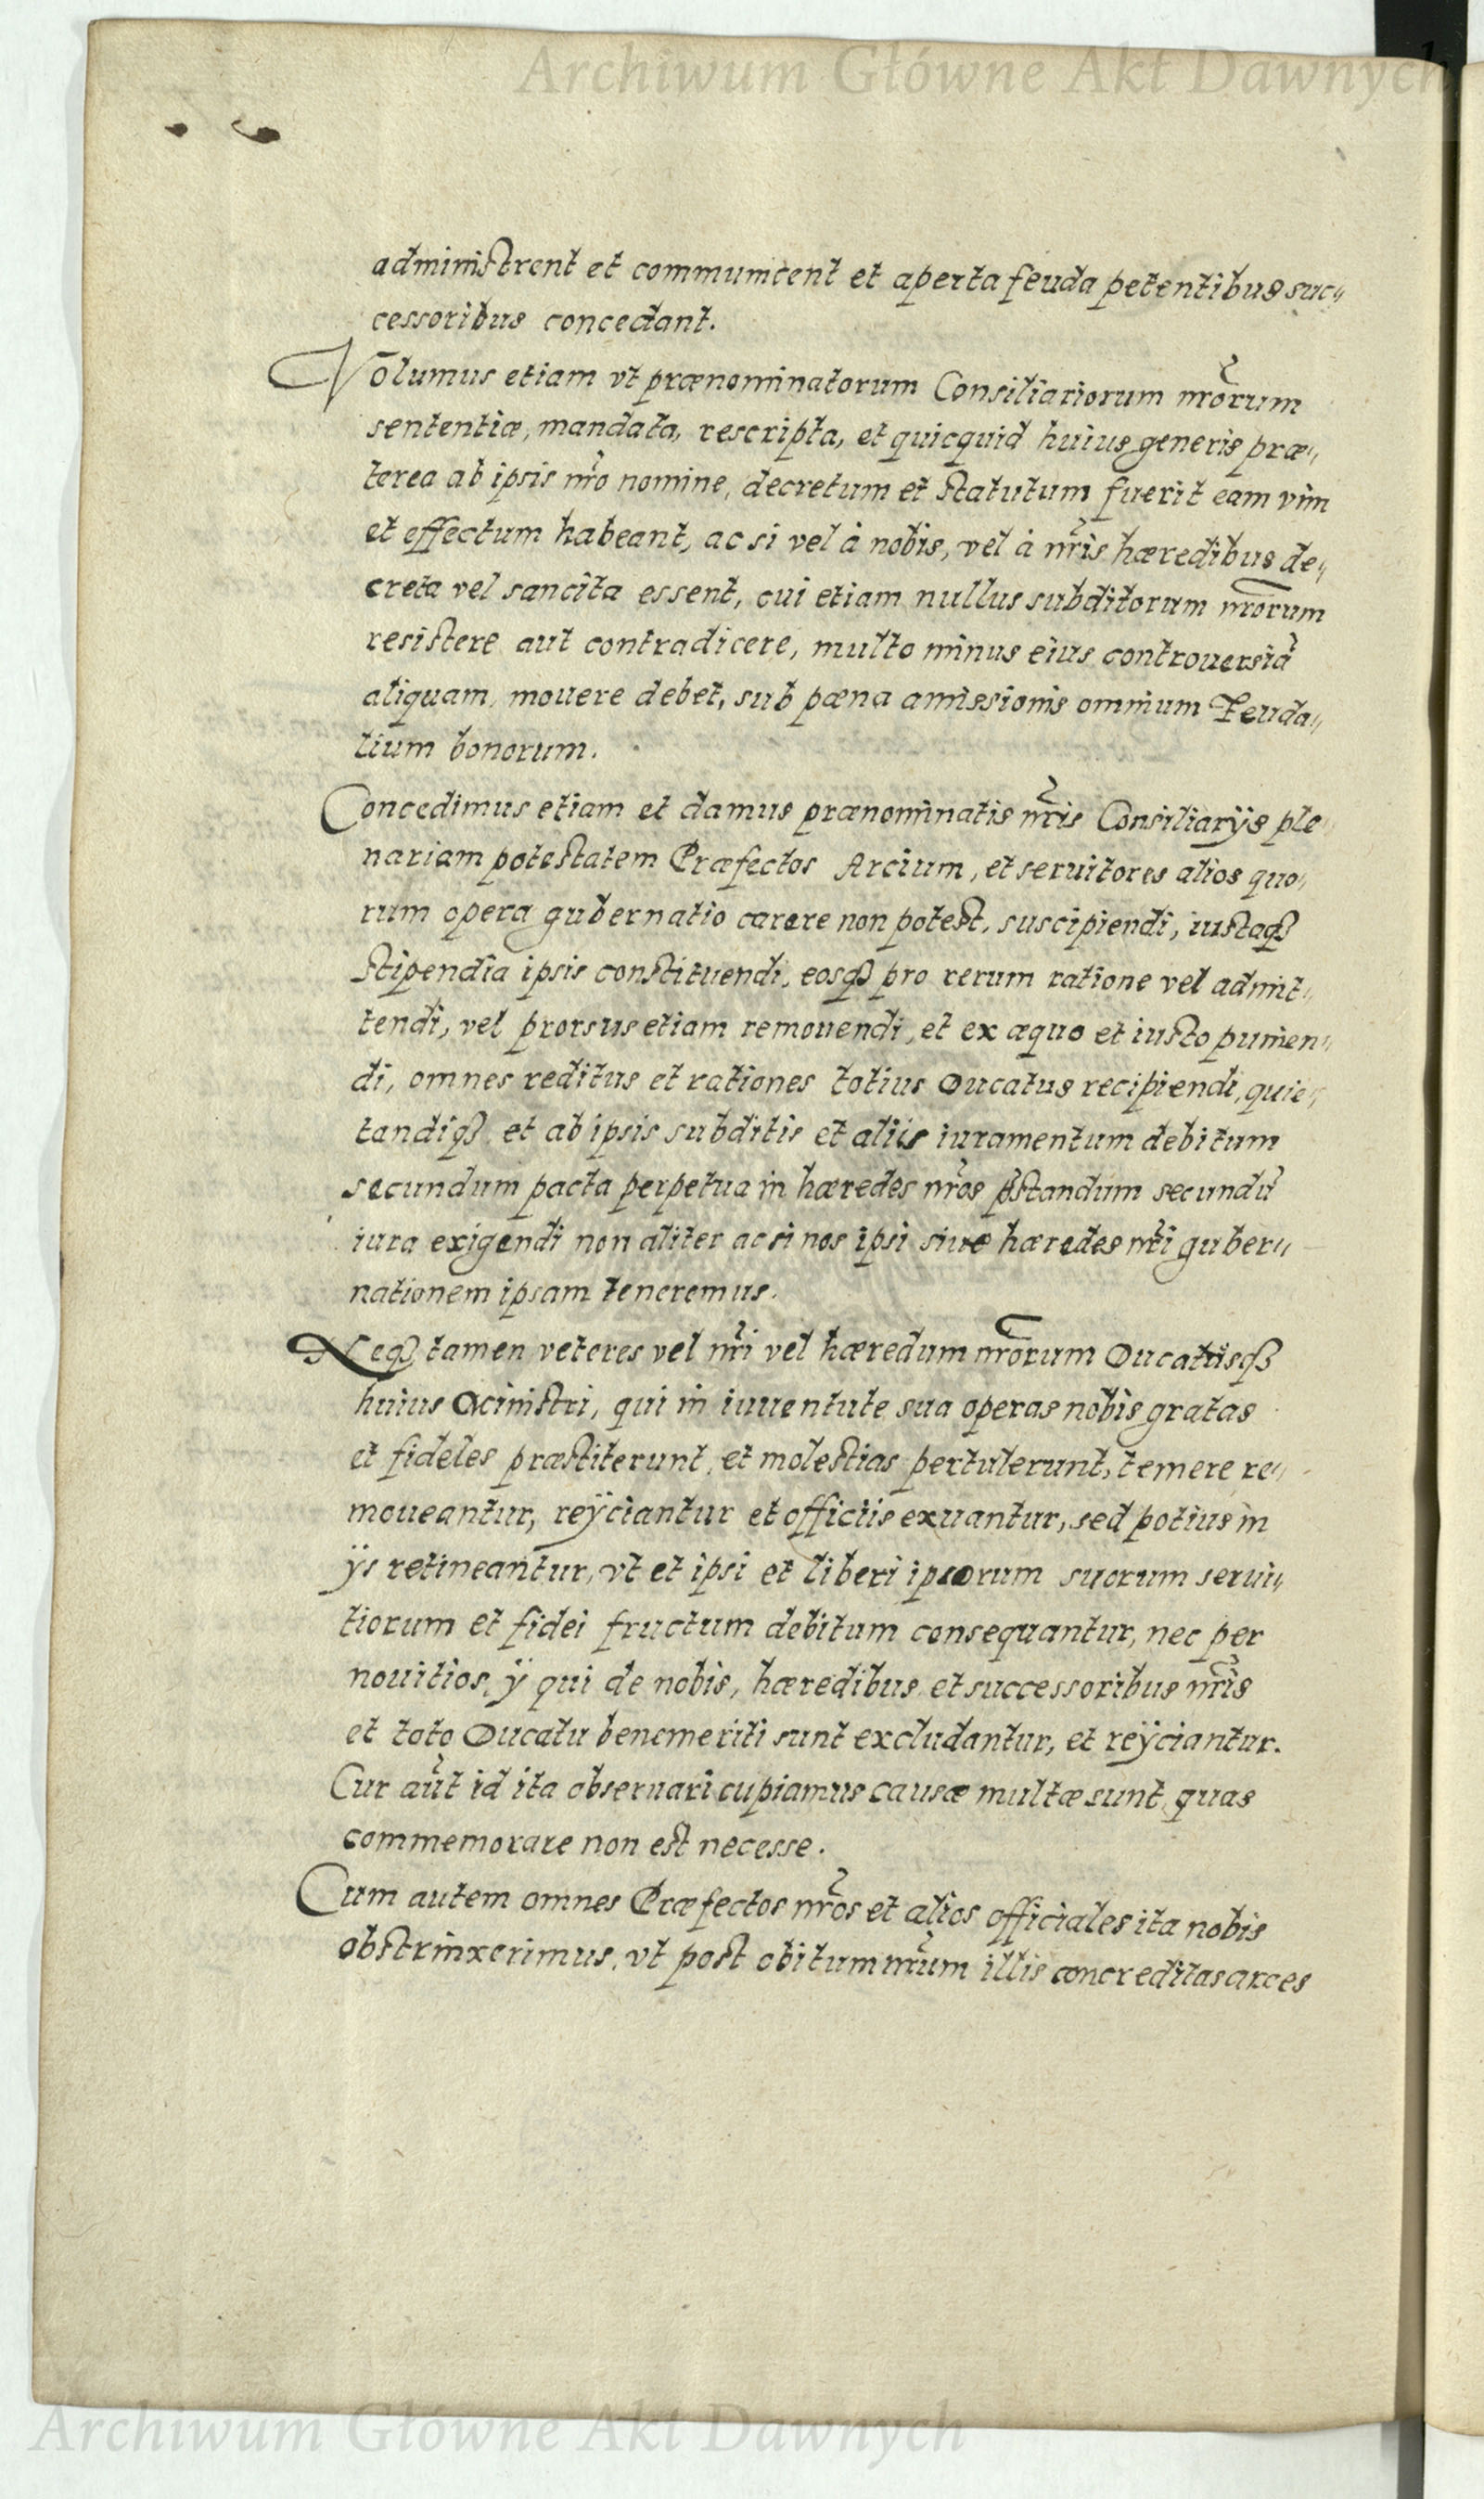 Archiwum Główne Akt Dawnych
administrent et communicent et aperta feuda petentibus suc„
cessoribus concedant.
Volumus etiam vt prænominatorum Consiliariorum nr̃orum
sententiæ, mandata, rescripta, et quicquid huius generis præ„
terea ab ipsis nr̃o nomine, decretum et statutum fuerit eam vim
et effectum habeant, ac si vel à nobis, vel à nr̃is hæredibus de„
creta vel sancita essent, cui etiam nullus subditorum nr̃orum
resistere aut contradicere, multo minus eius controuersiã
aliquam mouere debet, sub pæna amissionis omnium Feuda„
lium bonorum.
Concedimus etiam et damus prænominatis nr̃is Consiliarÿs ple„
nariam potestatem Præfectos Arcium, et seruitores alios quo„
rum opera gubernatio carere non potest, suscipiendi, iustaqȝ
stipendia ipsis constituendi, eosqȝ pro rerum ratione vel admit„
tendi, vel prorsus etiam remouendi, et ex æquo et iusto punien„
di, omnes reditus et rationes totius Ducatus recipiendi, quie„
tandiqȝ et ab ipsis subditis et aliis iuramentum debitum
secundum pacta perpetua in hæredes nr̃os p̃standum secundũ
iura exigendi non aliter ac si nos ipsi siue hæredes nr̃i guber„
nationem ipsam teneremus.
Neqȝ tamen veteres vel nr̃i vel hæredum nr̃orum Ducatusqȝ
huius Ministri, qui in iuuentute sua operas nobis gratas
et fideles præstiterunt, et molestias pertulerunt, temere re„
moueantur, reÿciantur et officiis exuantur, sed potius in
ÿs retineantur, vt et ipsi et liberi ipsorum suorum serui„
tiorum et fidei fructum debitum consequantur, nec per
nouitios, ÿ qui de nobis, hæredibus et successoribus nr̃is
et toto Ducatu benemeriti sunt excludantur, et reÿciantur.
Cur aũt id ita obseruari cupiamus causæ multæ sunt, quas
commemorare non est necesse.
Cum autem omnes Præfectos nr̃os et alios officiales ita nobis
obstrinxerimus, vt post obitum nr̃um illis concreditas arces
Archiwum Główne Akt Dawnych